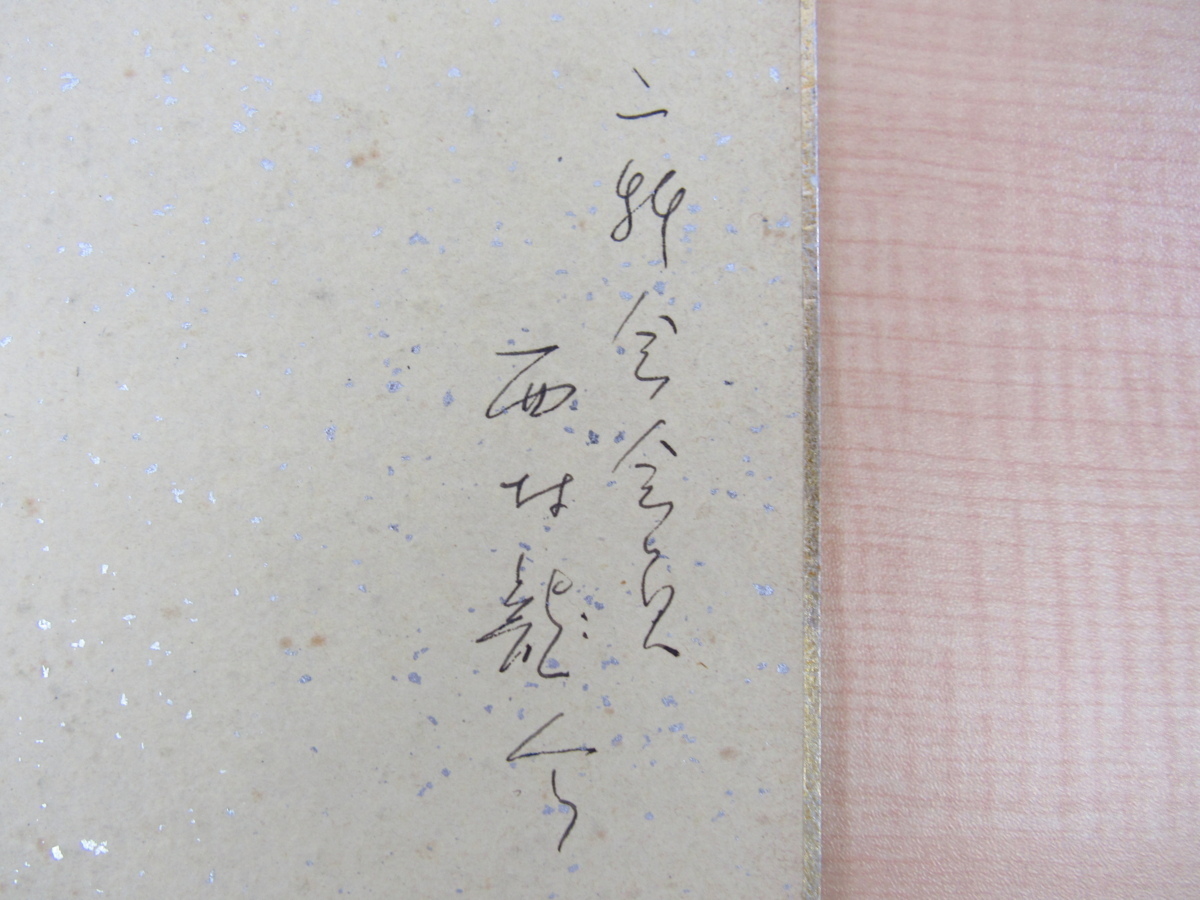 二科会会員
西村龍介